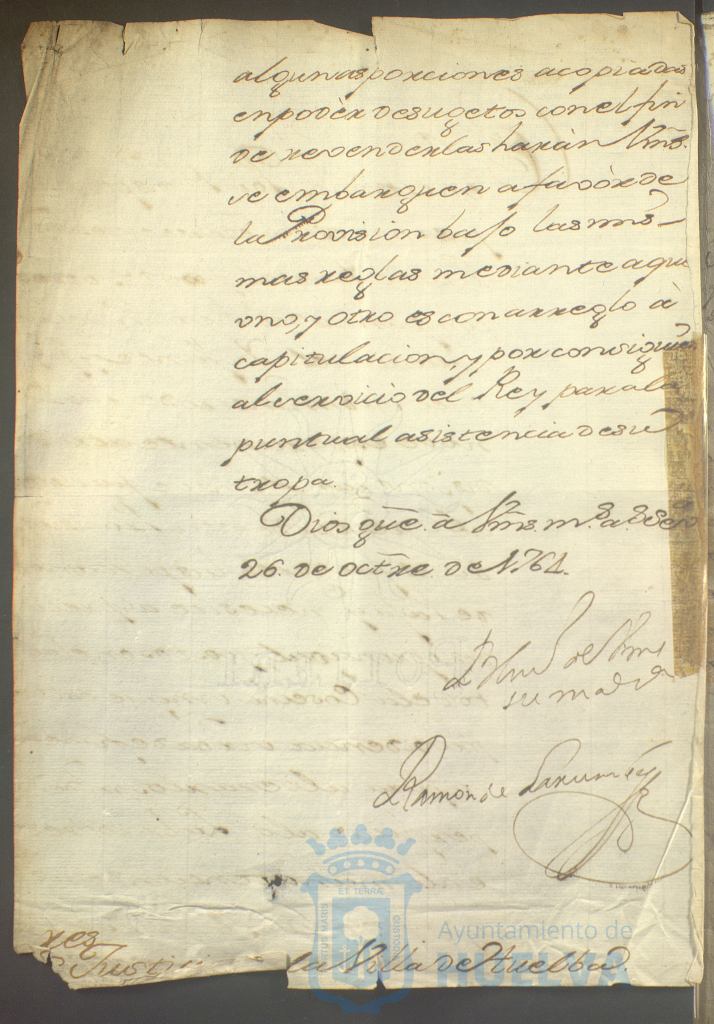 algunas porciones acopiadas
en podèr de sugetos con el fin
de revenderlas haràn Vms.
se embarguen a favòr de
la Provision bajo las mis-
mas reglas mediante a que
uno, y otro es con arreglo à
capitulacion, y por consigu.te
al servicio del Rey para la
puntual asistencia de su
tropa.
Dios gúe. a Vms. m.s a.s
26. de Octre. de 1764.
de Vms
su mas
Ramon de Larumbe
res
Justi la Villa de Huelba.
ET TERRÆ
PORTUS MARIS
CUSTODIA
Ayuntamiento de
HUELVA